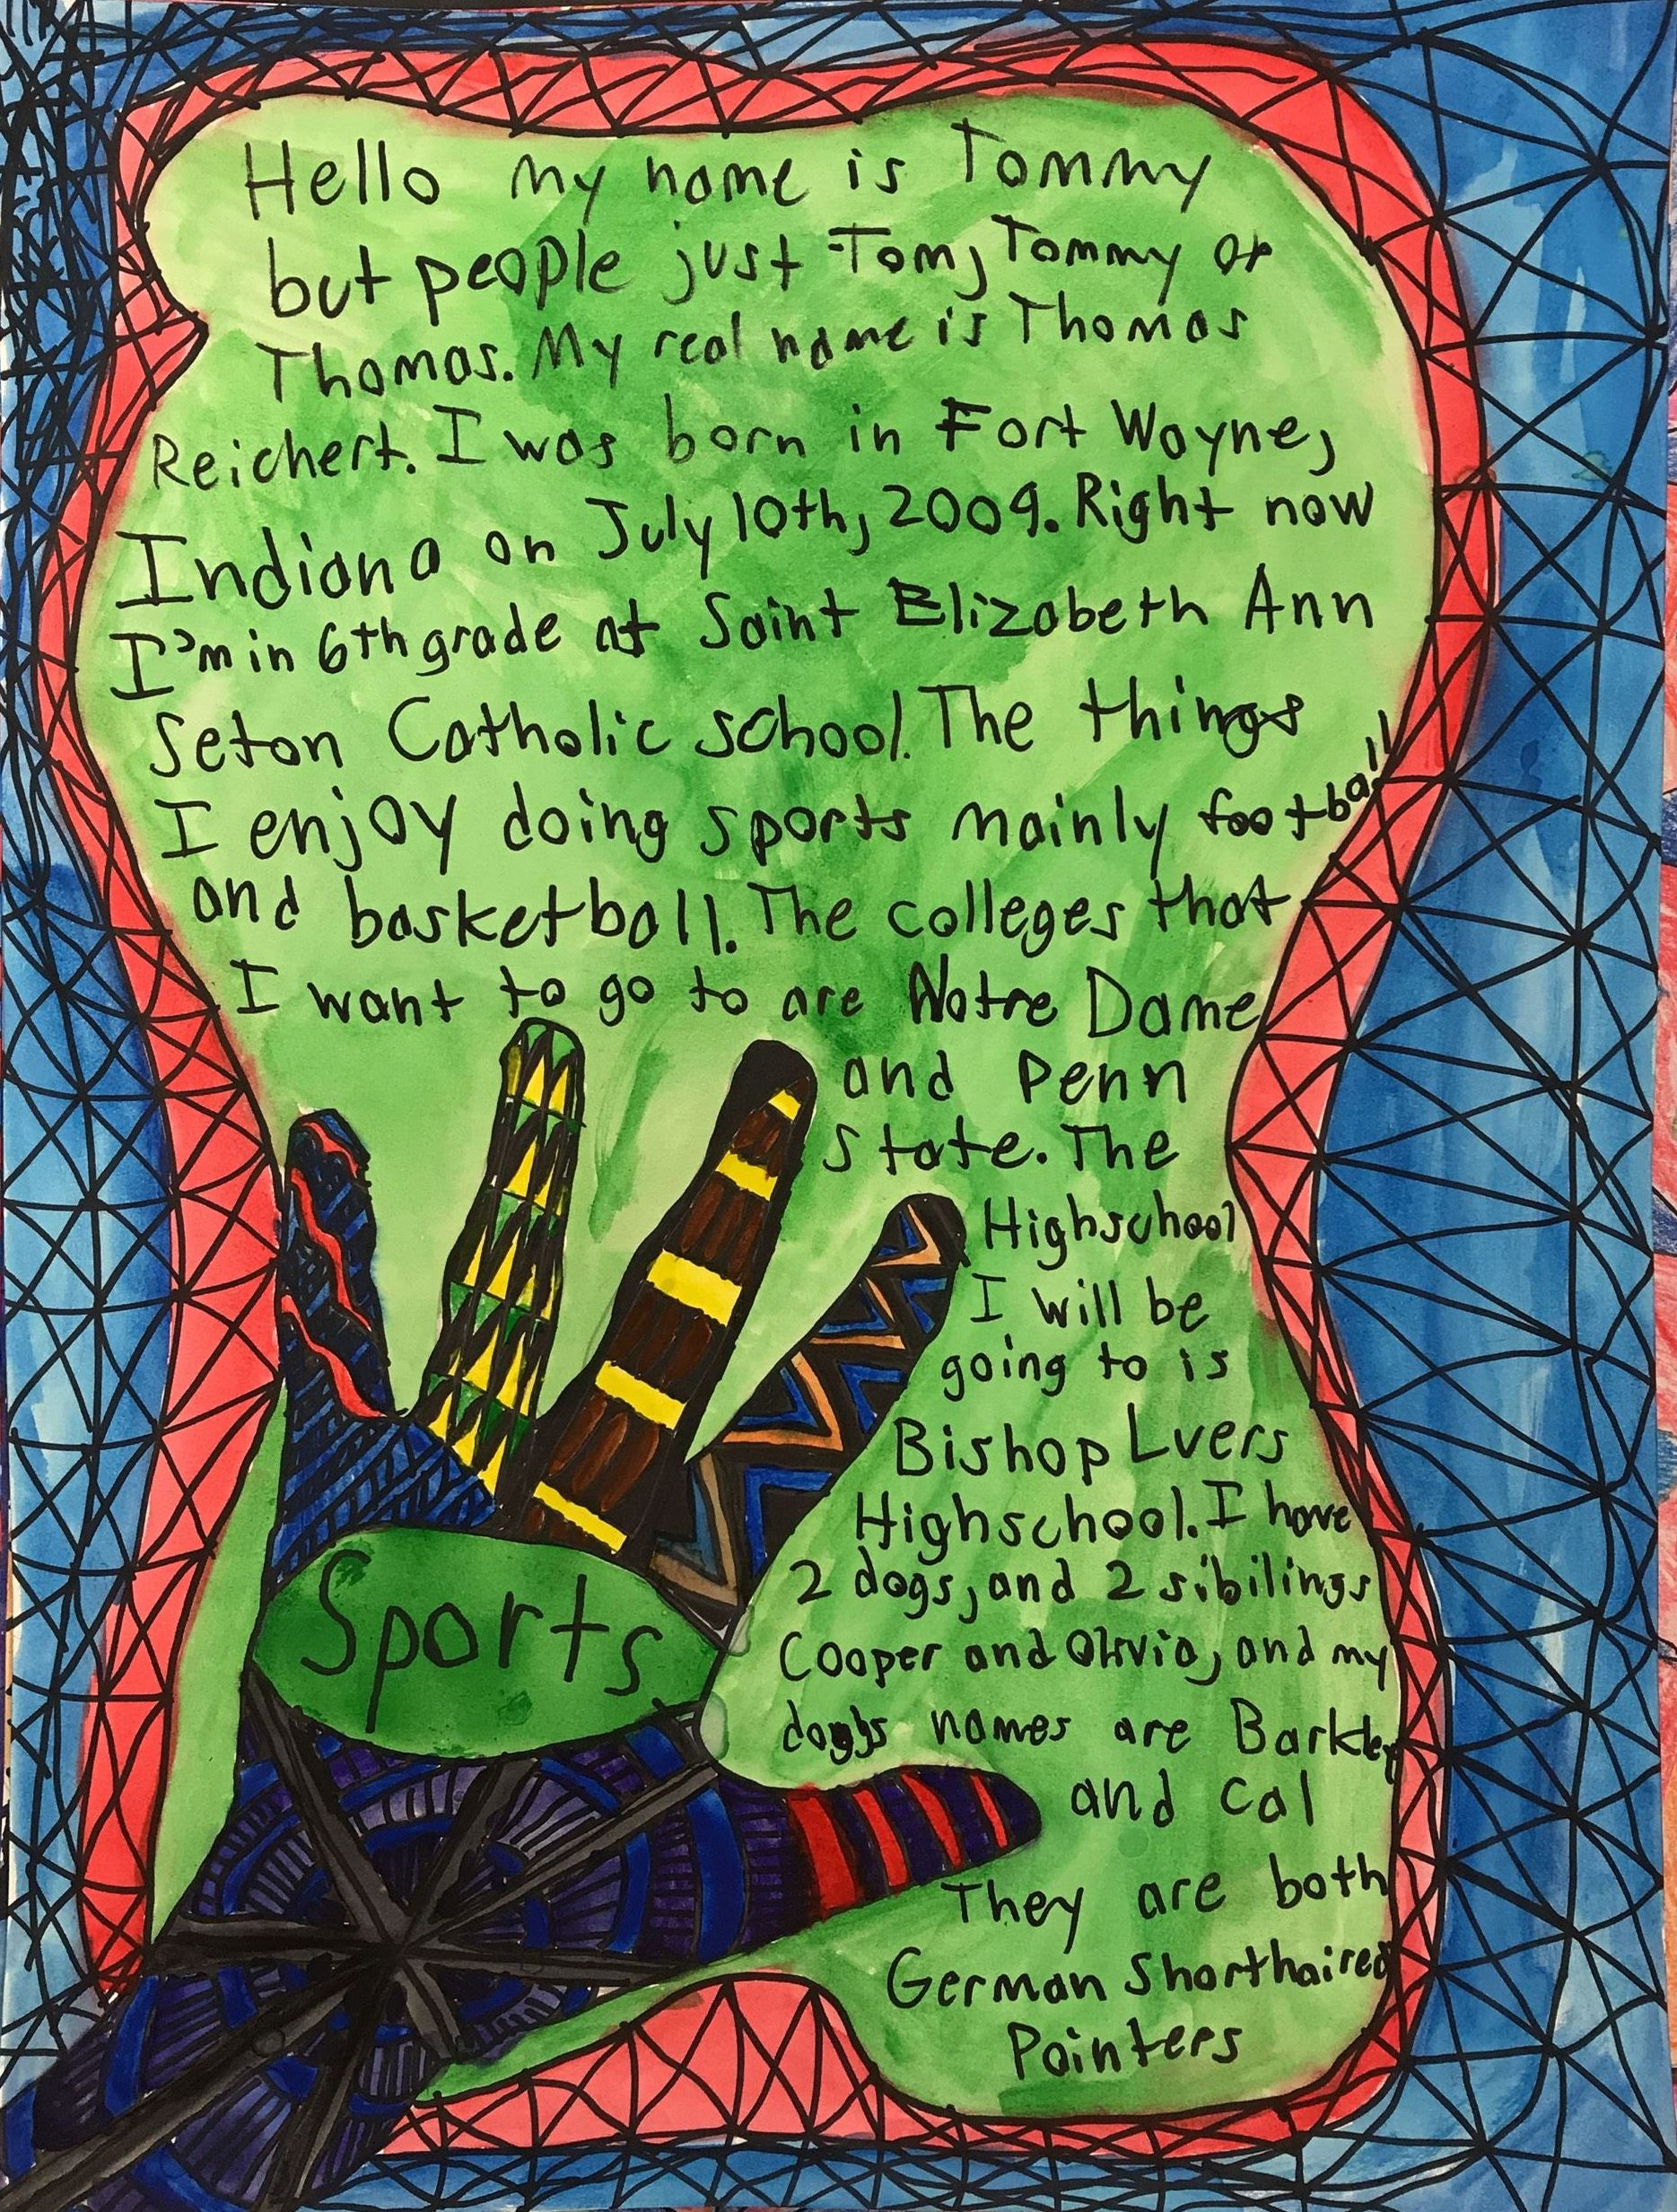 Hello my name is Tommy
but people just Tom, Tommy or
Thomas. My real name is Thomas
Reichert. I was born in Fort Wayne,
Indiana on July 10th, 2009. Right now
I'm in 6th grade at Saint Elizabeth Ann
Seton Catholic school. The things
I enjoy doing sports mainly football
and basketball. The colleges that
I want to go to are Notre Dame
and Penn
State. The
Highschool
I will be
going to is
Bishop Lvers
Highschool. I have
2 dogs, and 2 sibilings
Cooper and Olivia, and my
dogs names are Barkley
and Cal
They are both
German Shorthaired
Pointers
Sports